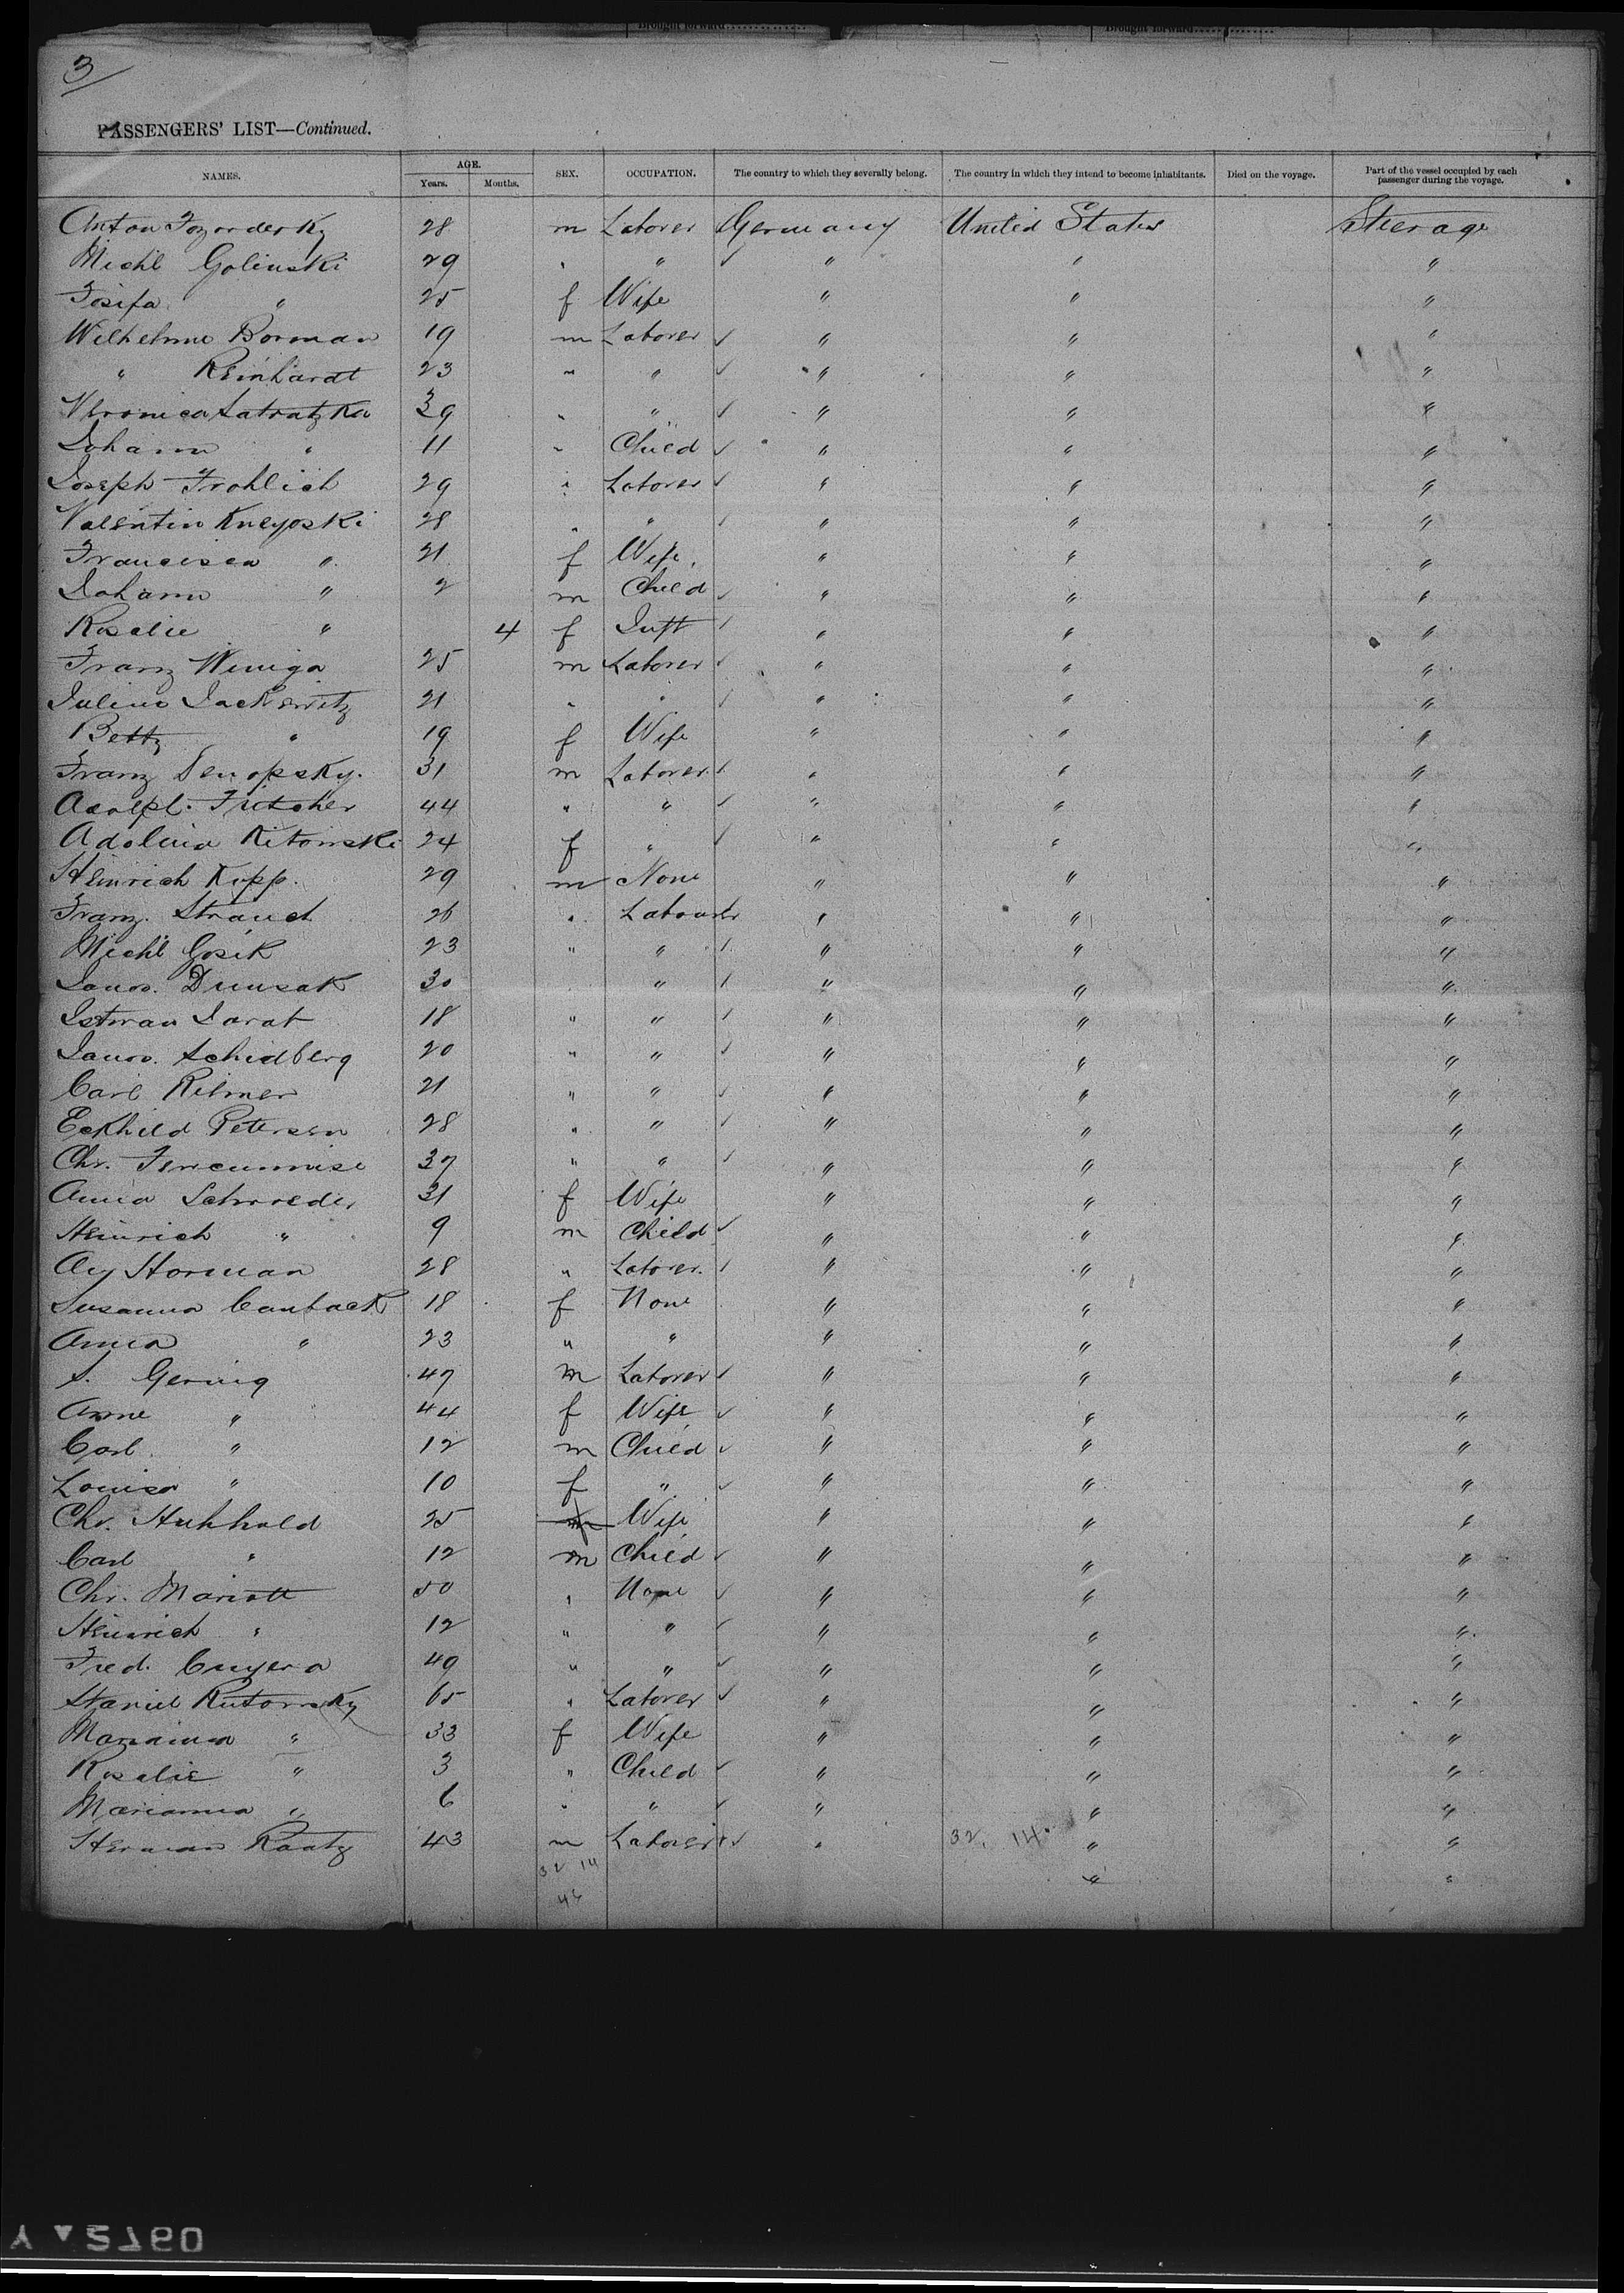 Brought forward............... Brought forward...............
3
PASSENGERS' LIST—Continued.
NAMES. AGE. Years. Months. SEX. OCCUPATION. The country to which they severally belong. The country in which they intend to become inhabitants. Died on the voyage. Part of the vessel occupied by each passenger during the voyage.
Anton 28 m Laborer Germany United States Steerage
Michl Golinski 29 " " " " "
Josifa " 25 f Wife " " "
Wilhelmine Borman 19 m Laborer " " "
" Reinhardt 23 " " " " "
Veronica Latratzka 39 " " " " "
Johann " 11 " Child " " "
Joseph Frohlich 29 " Laborer " " "
Valentin Kneyoski 28 " " " " "
Francisca " 21 f Wife " " "
Johann " 2 m Child " " "
Rosalie " 4 f Inft " " "
Franz Winiga 25 m Laborer " " "
Julius Jackewitz 21 " " " " "
Betty " 19 f Wife " " "
Franz Senopsky. 31 m Laborer " " "
Adolph. Fritscher 44 " " " " "
Adolina Kitowski 24 f " " " "
Heinrich Kopp. 29 m None " " "
Franz. Strauch 26 " Labourer " " "
Michl Gosik 23 " " " " "
Janos. Dunsak 30 " " " "
Istwan Jarat 18 " " " " "
Janos. Schidberg 20 " " " " "
Carl Rilmer 21 " " " " "
Eckhild Petersen 28 " " " " "
Chr. 37 " " " " "
Anna Schroeder 31 f Wife " " "
Heinrich " 9 m Child " " "
Horman 28 " Laborer. " " "
Susanna Canback 18 f None " " "
Anna " 23 " " " " "
S. Gering 47 m Laborer " " "
Anne " 44 f Wife " " "
Carl " 12 m Child " " "
Louisa " 10 f " " " "
Chr. Huhhold 25 m Wife " " "
Carl " 12 m Child " " "
Chr. Mariott 50 " None " " "
Heinrich " 12 " " " " "
Fred. Cuyera 49 " " " " "
Staniel Rutowsky 65 " Laborer " " "
Marianna " 33 f Wife " " "
Rosalie " 3 " Child " " "
Marianna " 6 " " " " "
Herman Raatz 43 m Laborer " 32. 14. " "
32 14 " "
46